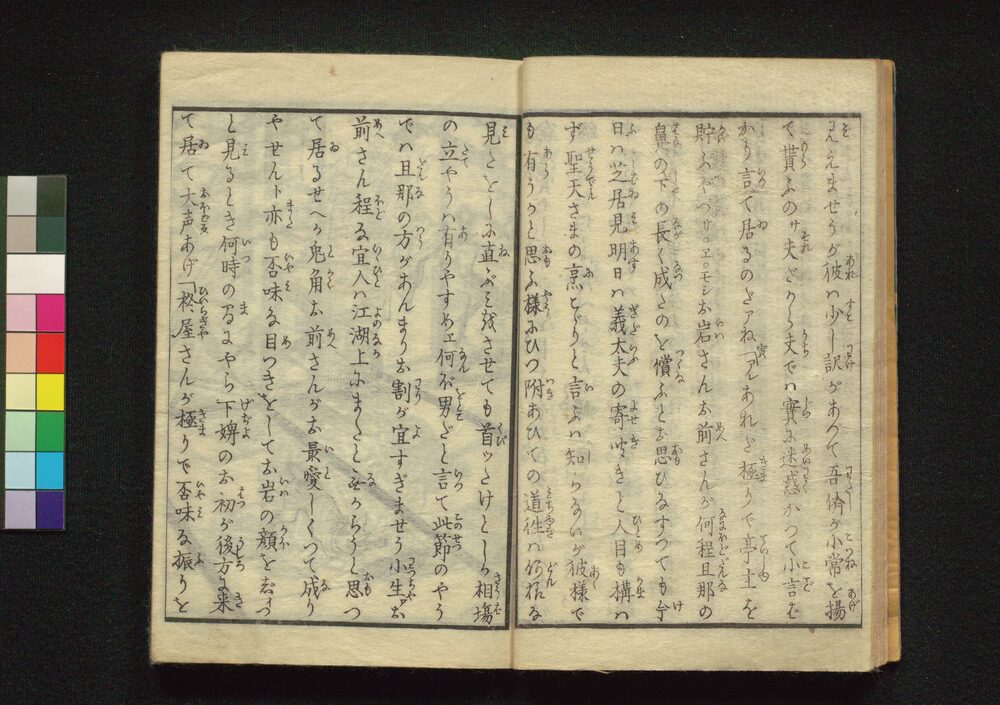 見えませうが彼は少し訳があつて吾儕が小常を揚
て貰ふのサ夫だから夫では實に迷惑がつて小言ば
かり言て居るのだアね「ツとあれだ極りで亭主を
貯ふやつサ。エ。モシお岩さんお前さんが何程旦那の
鼻の下の長く成たのを償ふとお思ひなすつても今
日は芝居見明日は義太夫の寄せきと人目も構は
ず聖天さまの烹どりと言ふは知らないが彼様で
も有うかと思ふ様にひつ附あひての道行は何振な
見たをしに直ぶみをさせても首ツたけとしか相場
の立やうは有りやすめエ何ぼ男だと言て此節のやう
では旦那の方があんまりお割が宜すぎませう小生がお
前さん程な宜人は江湖上にまたとあるからうと思つ
て居るせへか兎角お前さんがお最愛しくつて成り
やせんト亦も否味な目つきをしてお岩の顔をぢつ
と見るとき何時の間にやら下婢のお初が後方に来
て居て大声あげ「柊屋さんが極りで否味な振りを